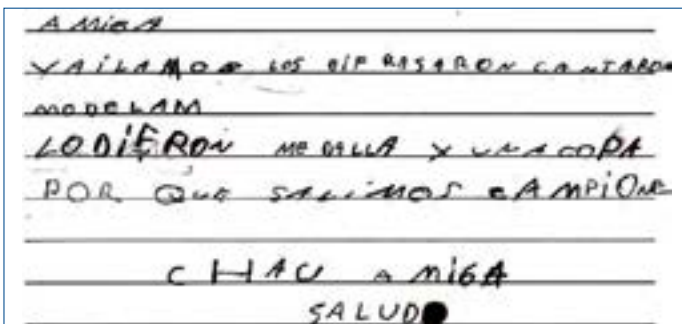 AMIGA
YAILAMOS LOS DIFRASARON CANTARON
MODELAM
LO DIERON MEDALLA Y UNA COPA
POR QUE SALIMOS CAMPIONE
CHAU AMIGA
SALUDO